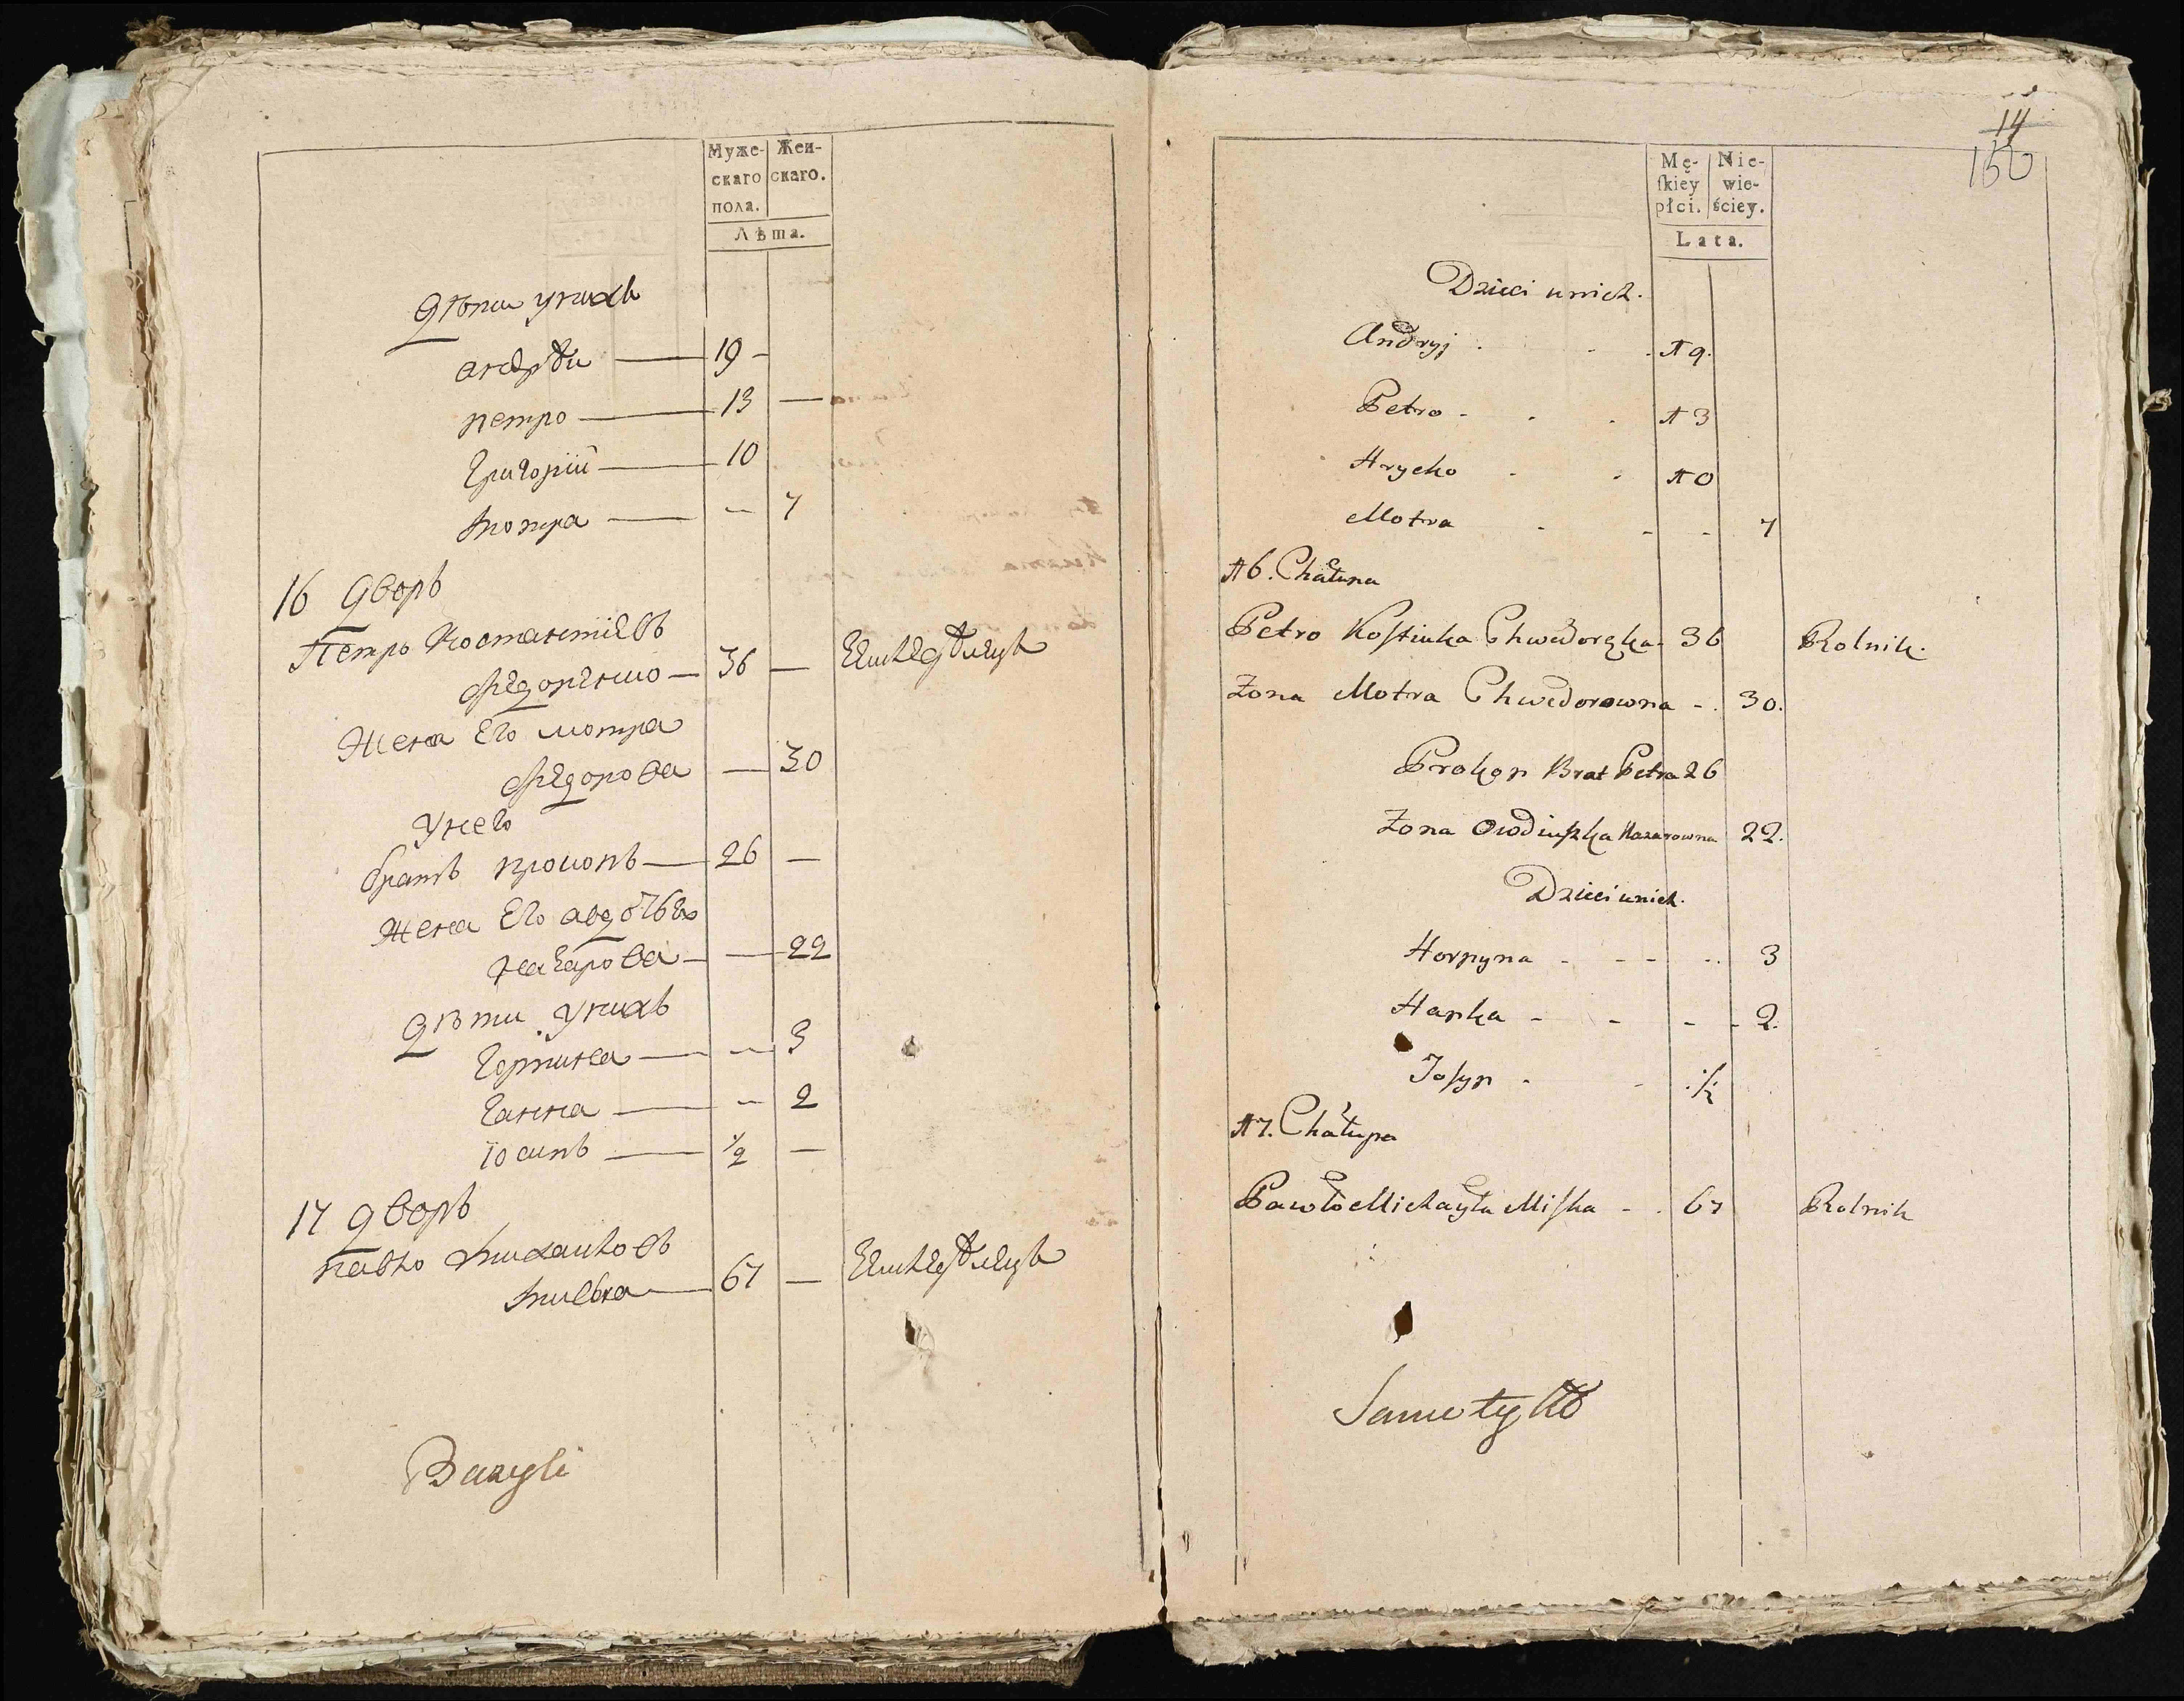 Муже-
скаго
пола.
Жен-
скаго.
Лѣта.
дѣти у нихъ
андрѣи — 19 -
петро — 13 —
григорiй — 10
мотра — - 7
16 дворъ
Петръ Костантiевъ
федоренко — 36 — земледѣлецъ
жена Его мотра
федорова — 30
у него
братъ прокопъ — 26 —
жена Его авдотья
назарова - — 22
дѣти у нихъ
горпина — - 3
ганна — - 2
iосипъ — 1/2 —
17 дворъ
павло михаиловъ
мисока — 67 — земледѣлецъ
Bazyli
14
150
Mę-
ſkiey
płci.
Nie-
wie-
ściey.
Lata.
Dzieci u nich.
Andryj 19.
Petro - 13
Hryćko 10
Motra - - 7
16. Chałupa
Petro Koſtiuka Chwedorczka 36 Rolnik.
Żona Motra Chwedorowna - 30.
Prokop Brat Petra 26
Żona Owdiuszka Nazarowna 22.
Dzieci u nich.
Horpyna - - - 3
Hapka - - - - 2.
Joſyp - - 1/2
17. Chałupa
Pawło Michayła Miſka - 67 Rolnik
Samotyłło